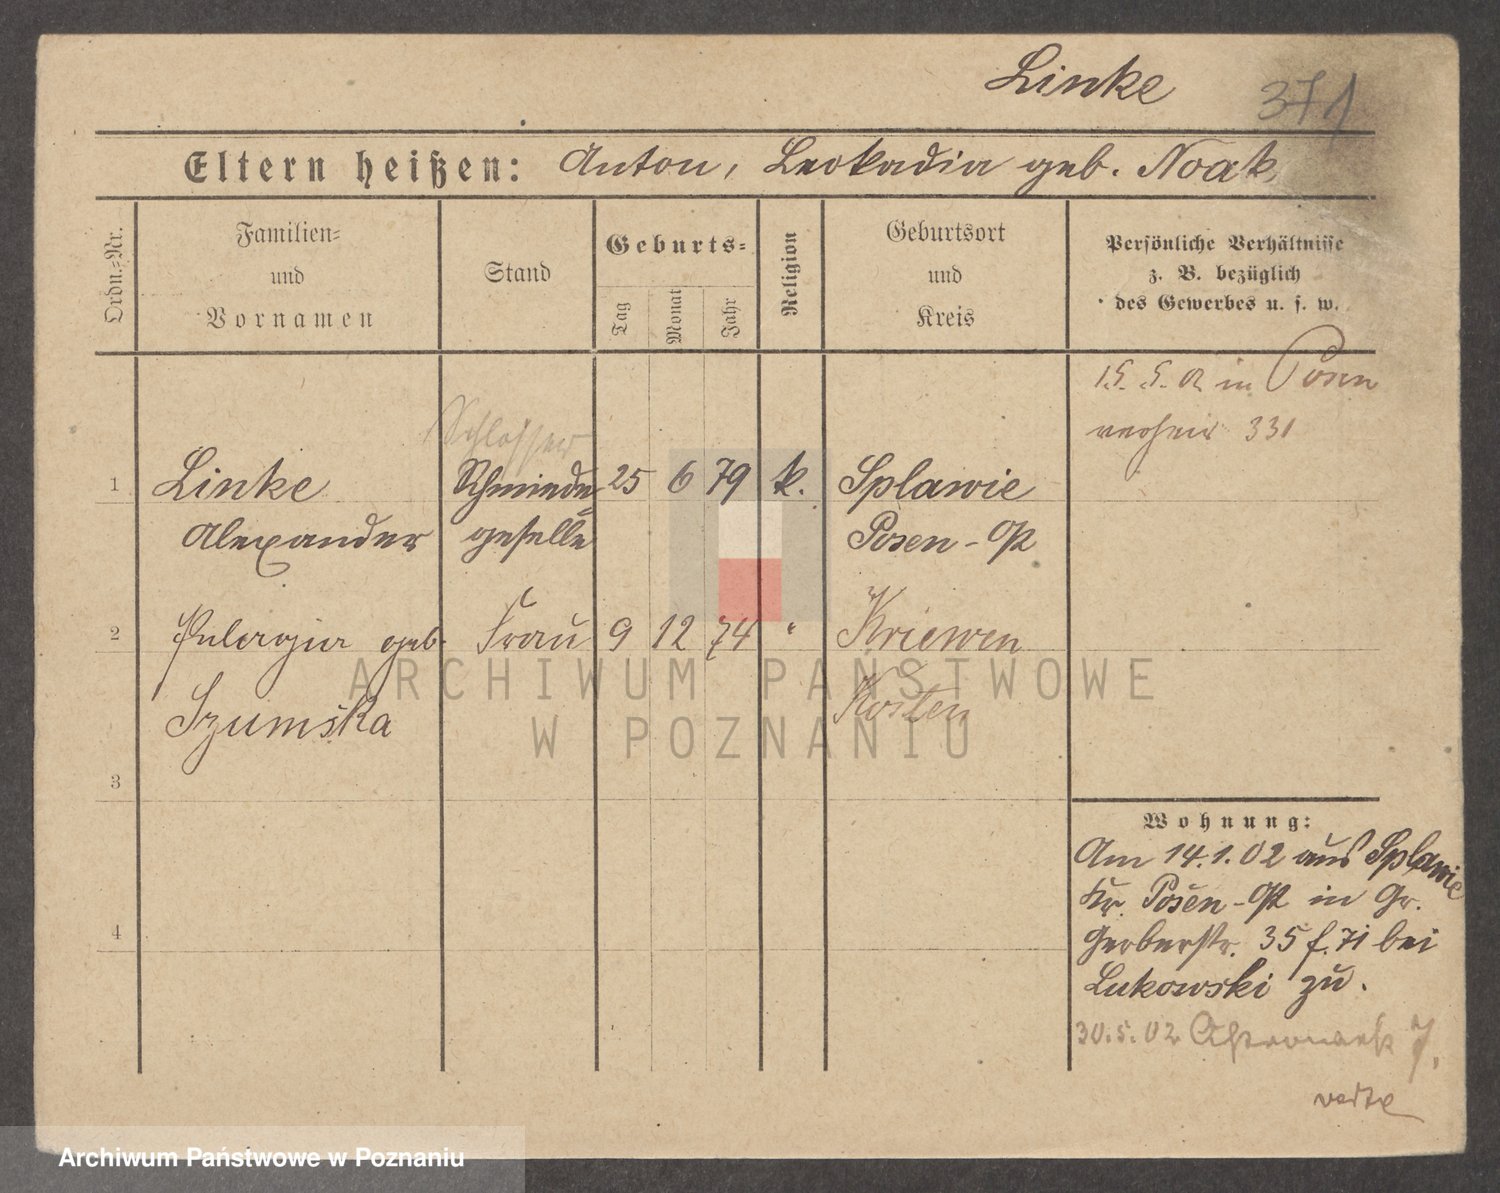 Linke 371
Eltern heißen: Anton, Leokadia geb. Noak
Ordn.-Nr.
Familien-
und
Vornamen
Stand
Geburts-
Tag
Monat
Jahr
Religion
Geburtsort
und
Kreis
Persönliche Verhältnisse
z. B. bezüglich
des Gewerbes u. s. w.
15. 5. 02 in Posen
verheir 331
Schlosser
1 Linke Schmiede 25 6 79 k. Splawie
Alexander geselle Posen-Ost
2 Pelagia geb. Frau 9 12 74 " Kriewen
Szumska Kosten
3
4
Wohnung:
Am 14.1.02 aus Splawie
Kr. Posen-Ost in Gr.
Gerberstr. 35 f. 71 bei
Lukowski zu.
30.5.02 7.
verte
ARCHIWUM PAŃSTWOWE
W POZNANIU
Archiwum Państwowe w Poznaniu